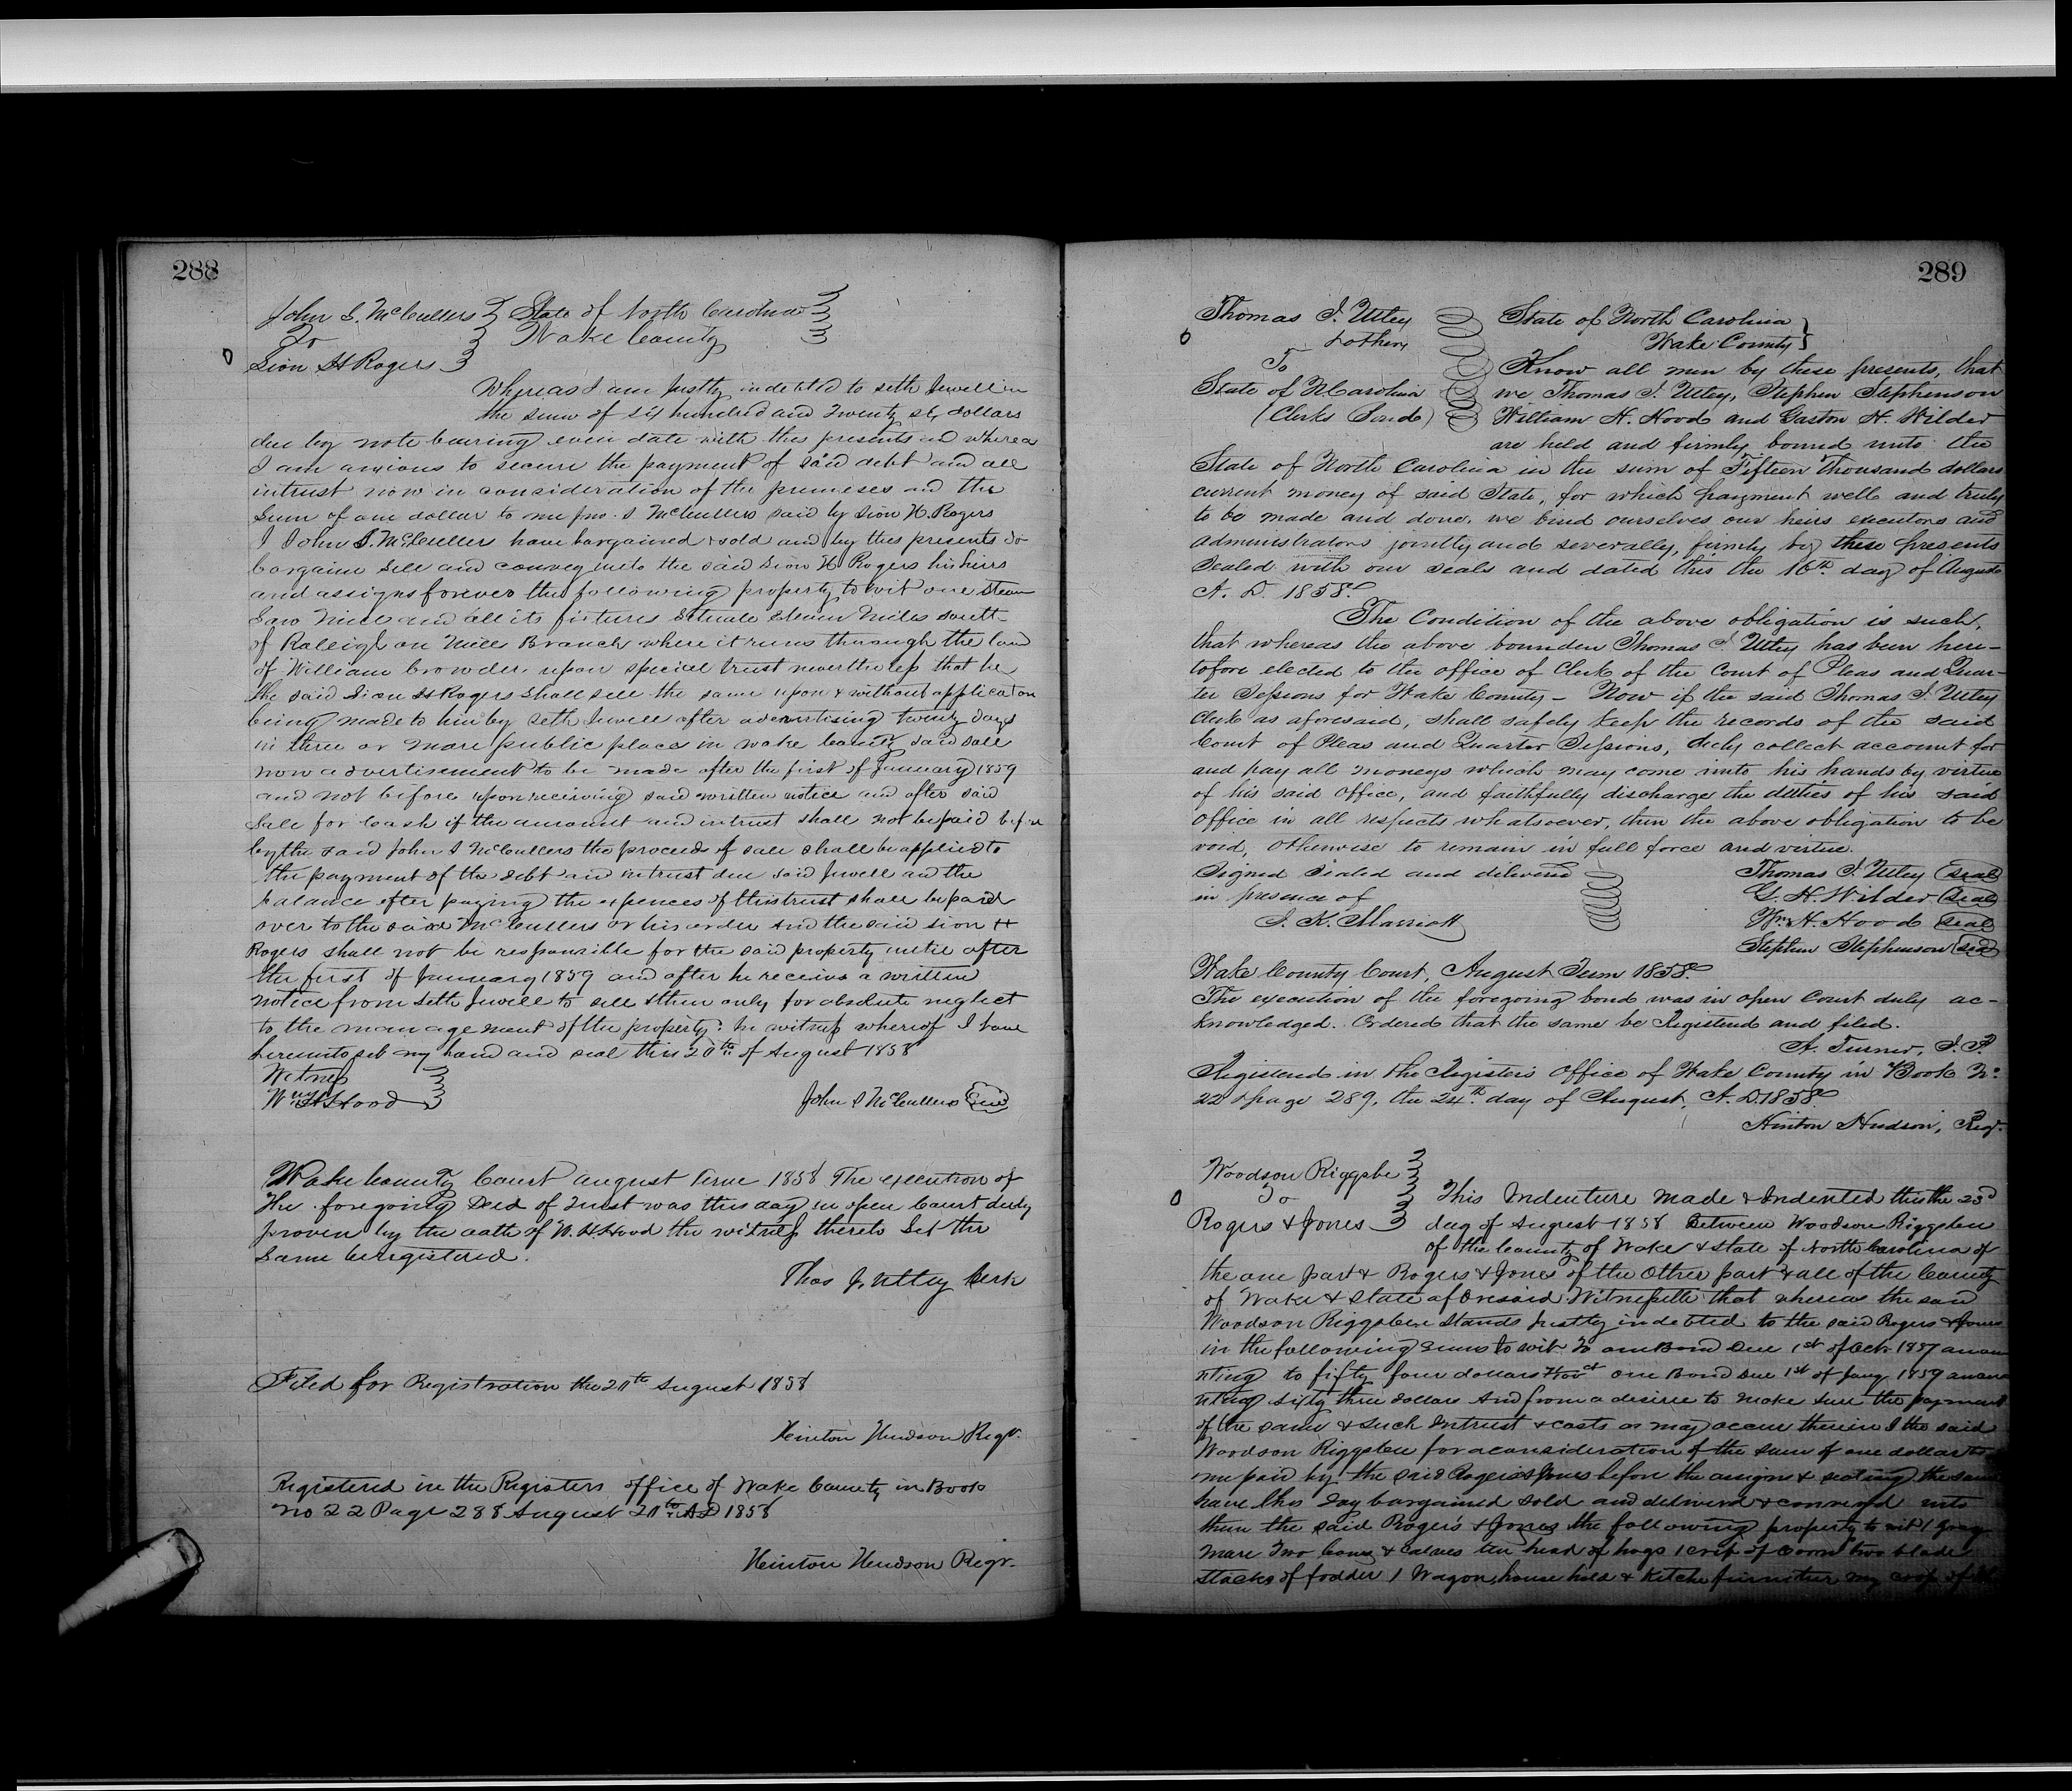 288
John S. McCullers State of North Carolina
To Wake County
Sion H Rogers
Whereas I am Justly indebted to Seth Jewell in
the sum of six hundred and twenty six dollars
due by note bearing even date with the presents and whereas
I am anxious to secure the payment of said debt and all
intrust now in consideration of the premeses and the
Sum of one dollar to me Jno. S McCullers said by Sion H. Rogers
I John S. McCullers have bargained & sold and by thes presents do
bargain Sell and convey unto the said Sion H Rogers his heirs
and assigns forever the following property to wit one steam
Saw Mill and all its fixtures Situate Eleven Miles south
of Raleigh on Mill Branch where it runs through the land
of William Crowder. upon special trust nevertheless that he
the said Sion H Rogers shall sell the same upon & without application
being made to him by Seth Jewell after advertising twenty days
in three or more public places in Wake County said sale
now advertisement to be made after the first of January 1859
and not before upon receiving said written notice and after said
Sale for Cash if the amount and intrust shall not be paid before
by the said John S McCullers the proceeds of sale shall be applied to
the payment of the debt and intrust due said Jewell and the
balance after paying the expences of this trust shall be paid
over to the said McCullers or his order And the said Sion H
Rogers shall not be responsible for the said property untill after
the first of January 1859 and after he receives a written
notice from Seth Jewell to sell & then only for absolute neglect
to the management of the property. In witness whereof I have
hereunto set my hand and seal this 20th of August 1858
Witness
Wm H Hood John S McCullers Seal
Wake County Court August Term 1858 The execution of
the foregoing Deed of Trust was this day in open Court duly
proven by the oath of W. H Hood the witness thereto Let the
Same be registered.
Thos J. Utley Clerk
Filed for Registration the 20th August 1858
Hinton Hudson Regr.
Registered in the Registers office of Wake County in Book
No 22 Page 288 August 20th AD 1858
Hinton Hudson Regr.
289
Thomas J. Utley State of North Carolina
& others Wake County
To Know all men by these presents, that
State of N Carolina we Thomas J. Utley, Stephen Stephenson
(Clerks Bond) William H. Hood and Gaston H. Wilder
are held and firmly bound unto the
State of North Carolina in the sum of Fifteen Thousand dollars
current money of said State, for which payment well and truly
to be made and done, we bind ourselves our heirs executors and
administrators jointly and severally, firmly by these presents
Sealed with our seals and dated this the 16th day of August
A. D. 1858.
The Condition of the above obligation is such,
that whereas the above bounden Thomas J. Utley has been here-
tofore elected to the office of Clerk of the Court of Pleas and Quar-
ter Sessions for Wake County - Now if the said Thomas J. Utley
Clerk as aforesaid, shall safely keep the records of the said
Court of Pleas and Quarter Sessions, duly collect account for
and pay all moneys which may come into his hands by virtue
of his said office, and faithfully discharge the duties of his said
office in all respects whatsoever, then the above obligation to be
void, otherwise to remain in full force and virtue.
Signed Sealed and delivered Thomas J. Utley Seal
in presence of G. H. Wilder Seal
J. K. Marriott Wm. H. Hood Seal
Stephen Stephenson Seal
Wake County Court, August Term 1858.
The execution of the foregoing bond was in open Court duly ac-
knowledged. Ordered that the same be Registered and filed.
A. Turner, J. P.
Registered in the Registers Office of Wake County in Book No.
22 & page 289, the 24th day of August, A. D. 1858
Hinton Hudson, Regr.
Woodson Riggsbe
To This Indenture made & Indented this the 23d
Rogers & Jones day of August 1858 Between Woodson Riggsbee
of the County of Wake & State of North Carolina of
the one part & Rogers & Jones of the other part & all of the County
of Wake & State aforesaid Witnesseth that whereas the said
Woodson Riggsbee Stands Justly indebted to the said Rogers & Jones
in the following sums to wit To one Bond Due 1st of Oct 1857 amou
nting to fifty four dollars one Bond Due 1st of Jany 1859 amou
nting sixty three dollars And from a desire to make sure the payment
of the same & such intrust & costs as may accru therein I the said
Woodson Riggsbee for a consideration of the sum of one dollar to
me paid by the said Rogers & Jones before the assigns & sealing the same
have this day bargained sold and deliverd & conveyed unto
them the said Rogers & Jones the following property to wit 1 gray
mare two Cows & calves ten head of hogs 1 crib of corn two blade
stacks of fodder 1 Wagon, house hold & kitchen furniture my crop of